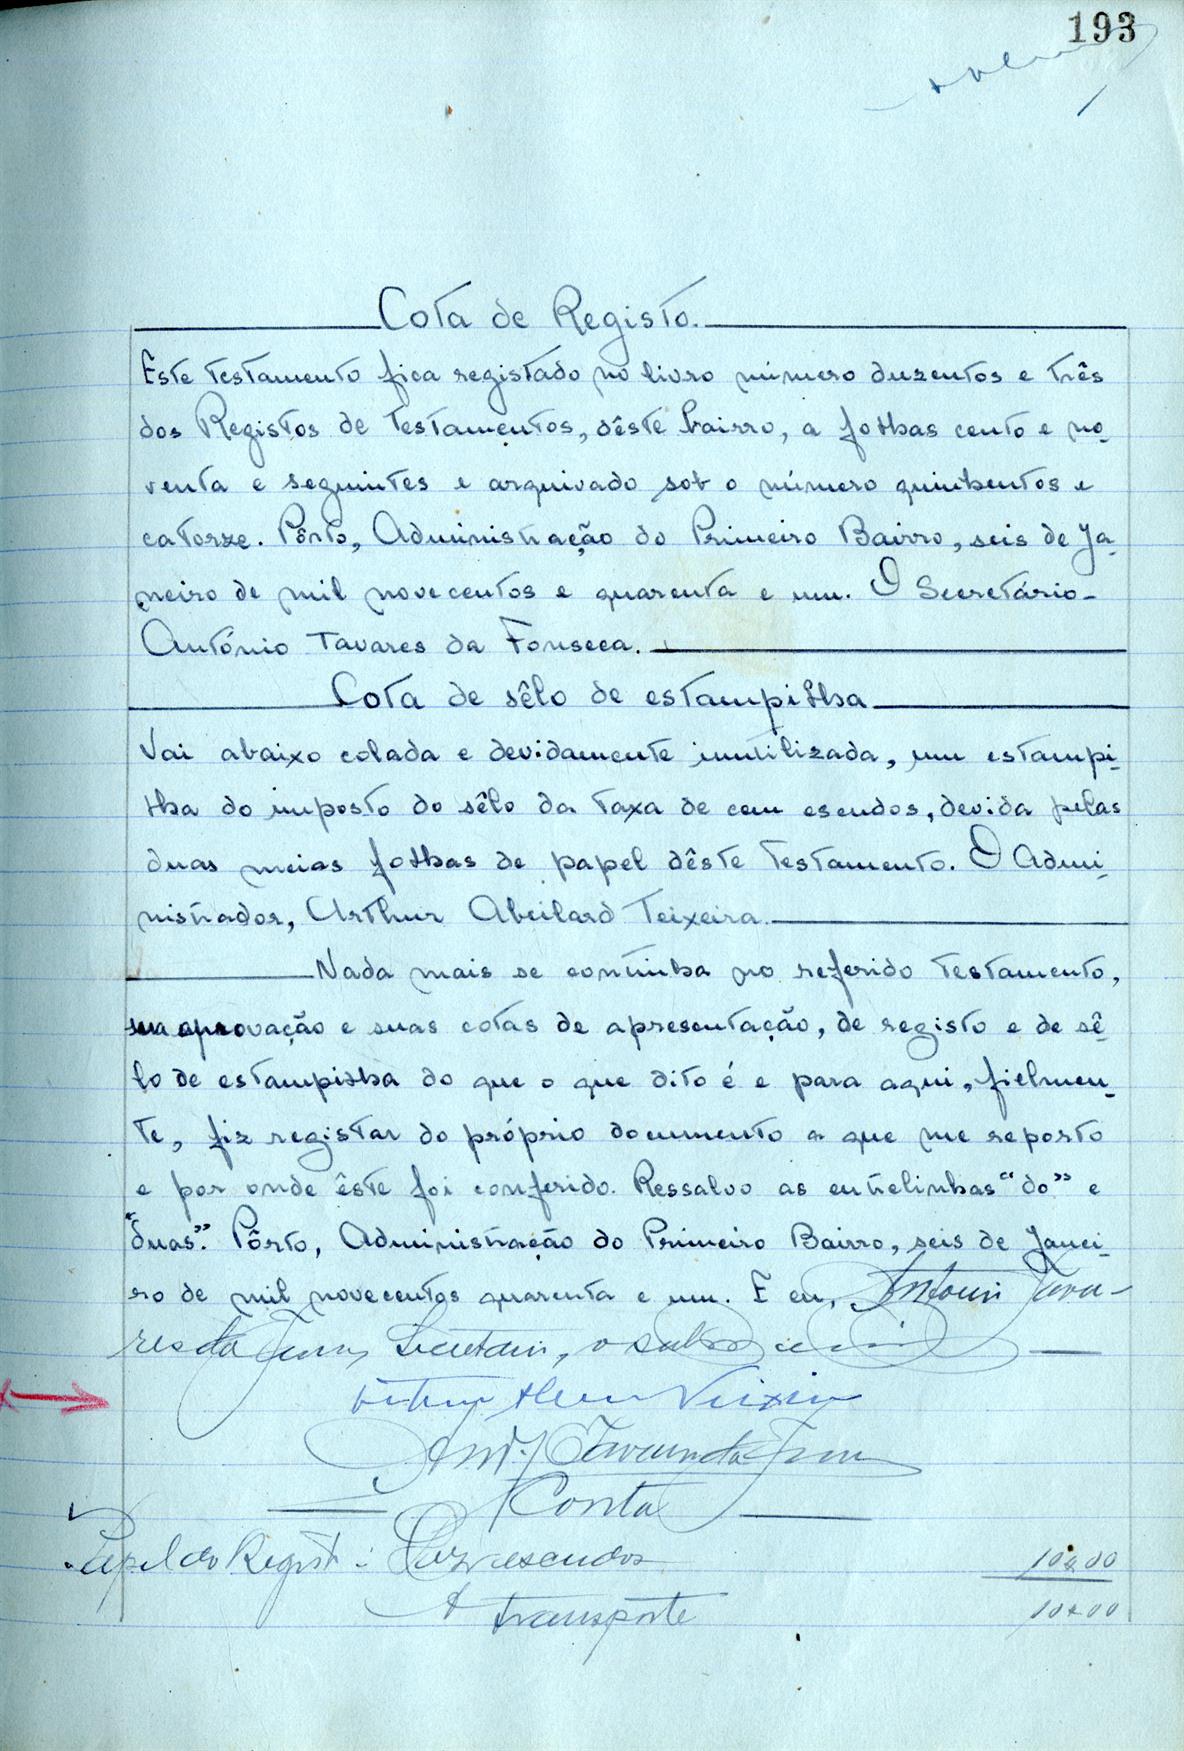 193
Cota de Registo.
Este testamento fica registado no livro número duzentos e três
dos Registos de Testamentos, dêste bairro, a folhas cento e no-
venta e seguintes e arquivado sob o número quinhentos e
catorze. Pôrto, Administração do Primeiro Bairro, seis de Ja-
neiro de mil novecentos e quarenta e um. O Secretário-
António Tavares da Fonseca.
Cota de sêlo de estampilha
Vai abaixo colada e devidamente inutilizada, um estampi-
lha do imposto do sêlo da taxa de cem escudos, devida pelas
duas meias folhas de papel dêste testamento. O Admi-
nistrador, Arthur Abeilard Teixeira.
Nada mais se continha no referido testamento,
sua aprovação e suas cotas de apresentação, de registo e de sê-
lo de estampilha do que o que dito é e para aqui, fielmen-
te, fiz registar do próprio documento a que me reporto
e por onde êste foi conferido. Ressalvo as entrelinhas "do" e
"duas". Pôrto, Administração do Primeiro Bairro, seis de Janei-
ro de mil novecentos quarenta e um. E eu, António Tava-
res da Secretário, o subscrevi
Conta
Papel do Registo: escudos 10$00
A transporte 10$00